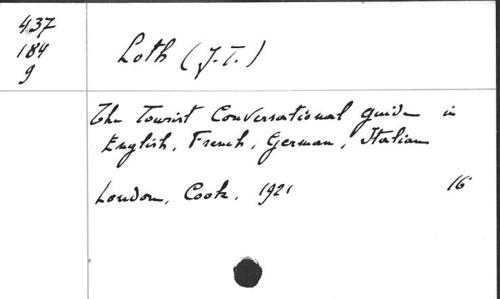 437
184
9
Loth (J.T.)
The Tourist Conversational guide in
English, French, German, Italian
London, Cook, 1921 16